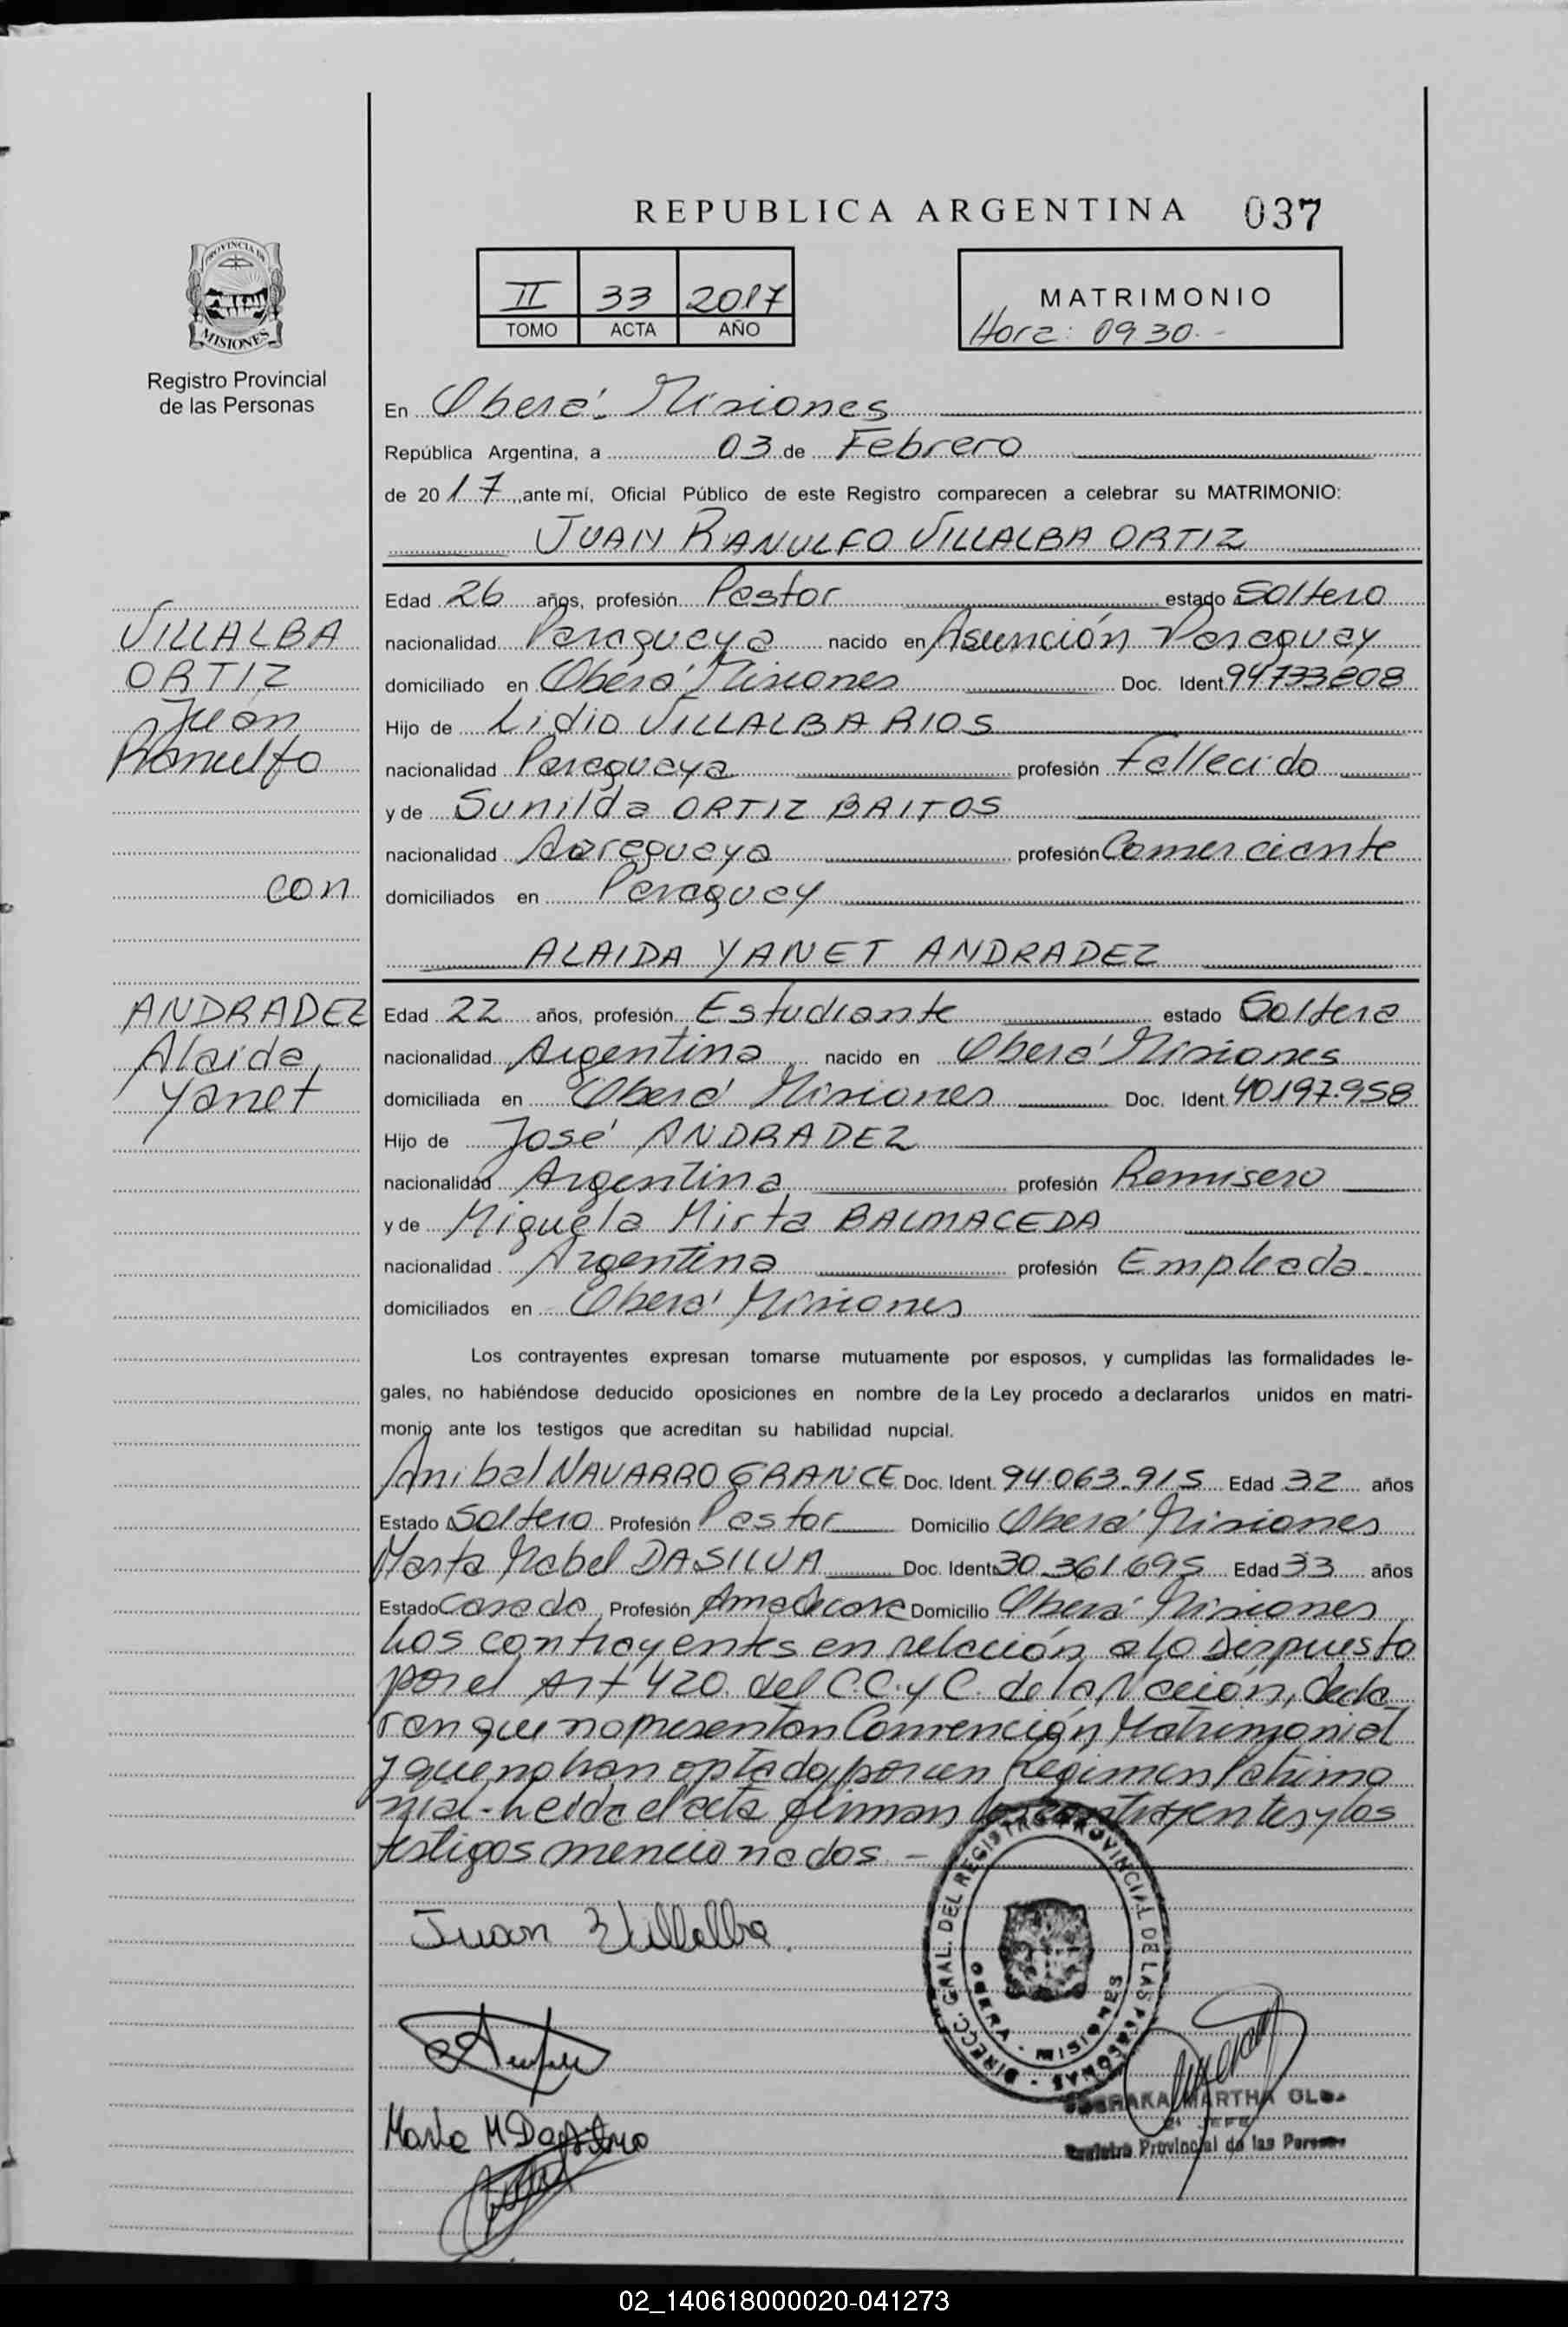 REPUBLICA ARGENTINA 037
PROVINCIA DE
MISIONES
Registro Provincial
de las Personas
II 33 2017
TOMO ACTA AÑO
MATRIMONIO
Hora: 09.30.-
En Oberá. Misiones
República Argentina, a 03 de Febrero
de 2017, ante mí, Oficial Público de este Registro comparecen a celebrar su MATRIMONIO:
JUAN RANULFO VILLALBA ORTIZ
VILLALBA
ORTIZ
Juan
Ranulfo
con
ANDRADEZ
Alaida
Yanet
Edad 26 años, profesión Pastor estado Soltero
nacionalidad Paraguaya nacido en Asunción Paraguay
domiciliado en Oberá Misiones Doc. Ident 94733208
Hijo de Lidio VILLALBA RIOS
nacionalidad Paraguaya profesión Fallecido
y de Sunilda ORTIZ BRITOS
nacionalidad Paraguaya profesión Comerciante
domiciliados en Paraguay
ALAIDA YANET ANDRADEZ
Edad 22 años, profesión Estudiante estado Soltera
nacionalidad Argentina nacido en Oberá Misiones
domiciliada en Oberá Misiones Doc. Ident. 40197.958
Hijo de José ANDRADEZ
nacionalidad Argentina profesión Remisero
y de Miguela Mirta BALMACEDA
nacionalidad Argentina profesión Empleada
domiciliados en Oberá Misiones
Los contrayentes expresan tomarse mutuamente por esposos, y cumplidas las formalidades le-
gales, no habiéndose deducido oposiciones en nombre de la Ley procedo a declararlos unidos en matri-
monio ante los testigos que acreditan su habilidad nupcial.
Anibal NAVARRO GRANCE Doc. Ident. 94.063.915 Edad 32 años
Estado Soltero Profesión Pastor Domicilio Oberá Misiones
Marta Mabel DASILVA Doc. Ident 30.361.695 Edad 33 años
Estado Casada Profesión Ama de casa Domicilio Oberá Misiones
Los contrayentes en relación a lo Dispuesto
por el Art 420. del C.C. y C. de la Nación, decla-
ran que no presentan Convención Matrimonial
y que no han optado por un Regimen Patrimo
nial- Leida el acta firman los contrayentes y los
testigos mencionados -
Juan Villalba.
DIRECC. GRAL. DEL REGISTRO PROVINCIAL DE LAS PERSONAS
OBERA - MISIONES
Marta M Dasilva
MARTHA
JEFE
Registro Provincial de las Personas
02_140618000020-041273